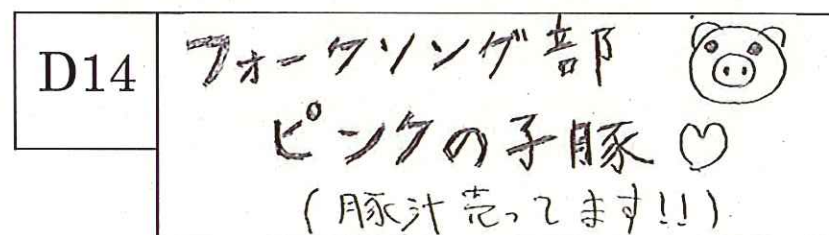 D14
フォークソング部
ピンクの子豚♡
(豚汁売ってます!!)